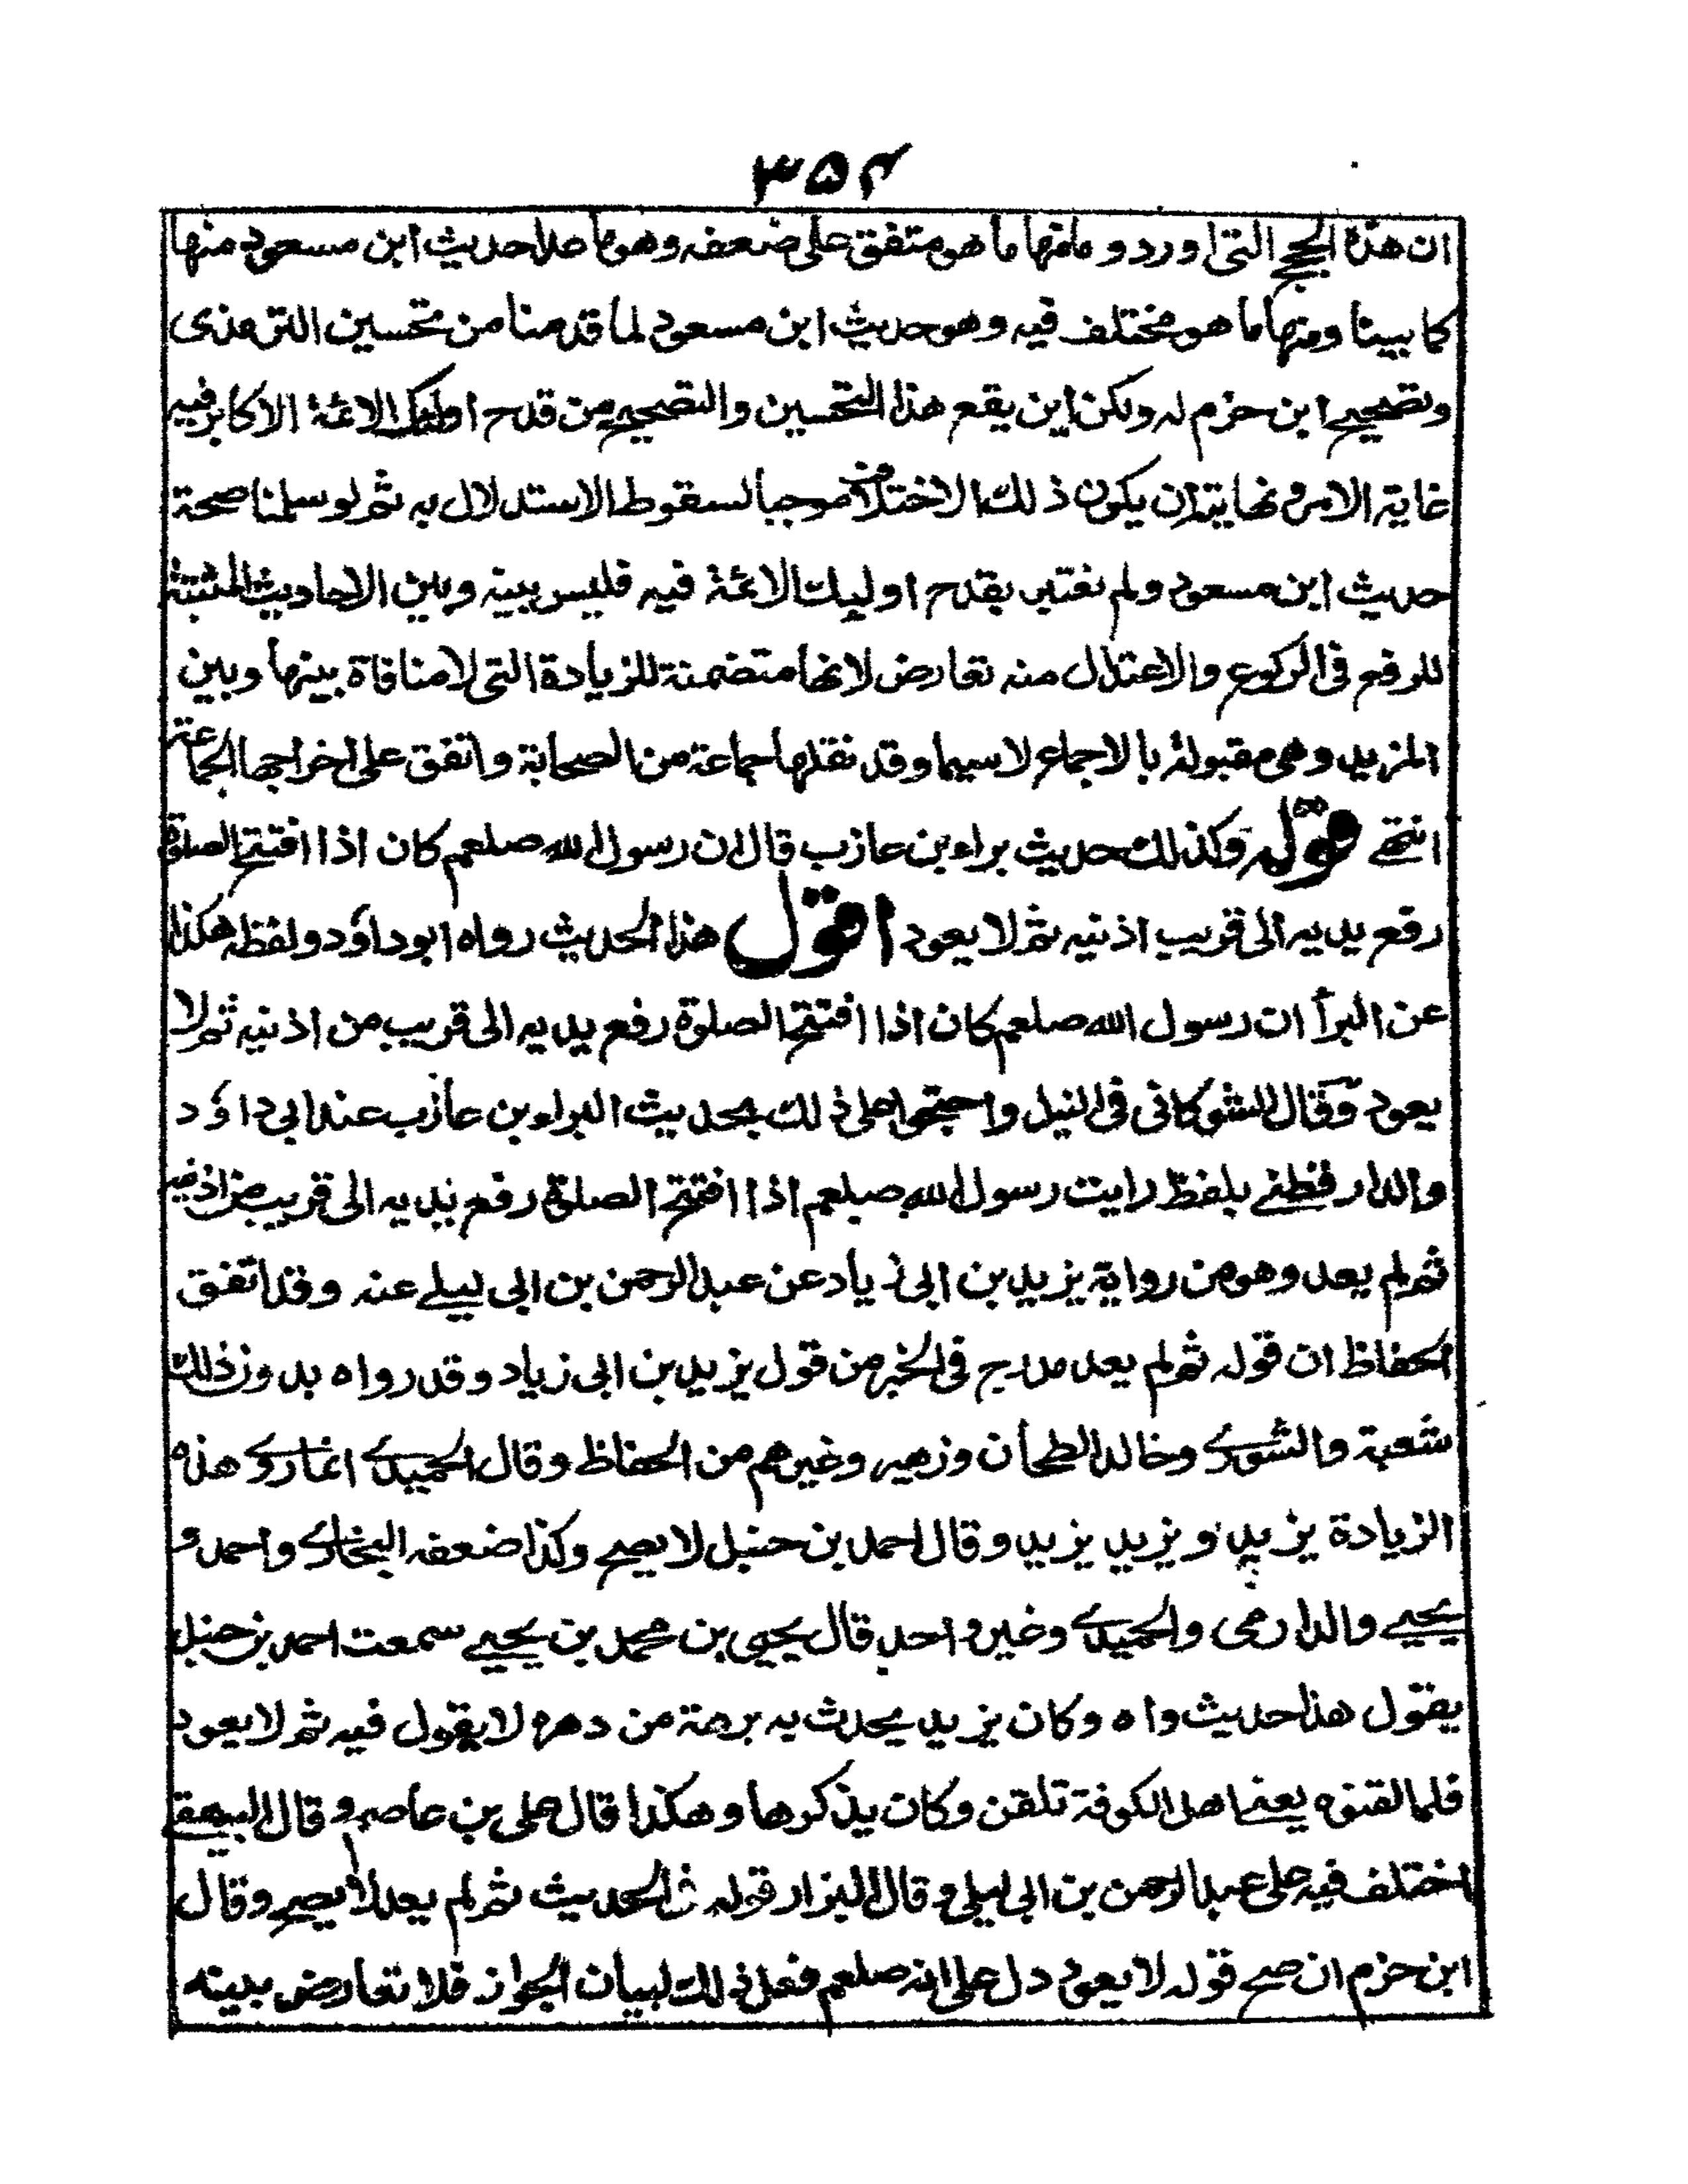 ۳۵۴
ان هذه الحجج التى اوردوها منها ما هو متفق على ضعفه وهو ما عدا حديث ابن مسعود منها
كما بينا ومنها ما هو مختلف فيه وهو حديث ابن مسعود لما قدمنا من تحسين الترمذى
وتصحيح ابن حزم له ولكن اين يقع هذا التحسين والتصحيح من قدح اولئك الائمة الاكابر فيه
غاية الامر ونهايته ان يكون ذلك الاختلاف موجبا لسقوط الاستدلال به ثم لو سلمنا صحة
حديث ابن مسعود ولم نعتبر بقدح اوليك الائمة فيه فليس بينه وبين الاحاديث المثبتة
للرفع فى الركوع والاعتدال منه تعارض لانها متضمنة للزيادة التى لا منافاة بينها وبين
المزيد وهى مقبولة بالاجماع لاسيما وقد نقلها جماعة من الصحابة واتفق على اخراجها الجماعة
انتهى قوله وكذلك حديث براء بن عازب قال ان رسول الله صلعم كان اذا افتتح الصلوة
رفع يديه الى قريب اذنيه ثم لا يعود اقول هذا الحديث رواه ابوداؤد ولفظه هكذا
عن البرأ ان رسول الله صلعم كان اذا افتتح الصلوة رفع يديه الى قريب من اذنيه ثم لا
يعود وقال الشوكانى فى النيل واحتجوا على ذلك بحديث البراء بن عازب عند ابى داؤد
والدارقطنے بلفظ رايت رسول الله صلعم اذا افتتح الصلوة رفع يديه الى قريب من اذنيه
ثم لم يعد وهو من رواية يزيد بن ابى زياد عن عبد الرحمن بن ابى ليلے عنه وقد اتفق
الحفاظ ان قوله ثم لم يعد مدرج فى الخبر من قول يزيد بن ابى زياد وقد رواه بدون ذلك
شعبة والثورے وخالد الطحان وزهير وغيرهم من الحفاظ وقال الحميدے انما روے هذه
الزيادة يزيد ويزيد يزيد وقال احمد بن حنبل لا يصح وكذا ضعفه البخارے واحمد و
يحيے والدارمى والحميدے وغير واحد قال يحيى بن محمد بن يحيے سمعت احمد بن حنبل
يقول هذا حديث واه وكان يزيد يحدث به برهة من دهره لا يقول فيه ثم لا يعود
فلما لقنوه يعنے اهل الكوفة تلقن وكان يذكرها وهكذا قال على بن عاصم وقال البيهقے
اختلف فيه على عبد الرحمن بن ابى ليلى وقال البزار قوله فى الحديث ثم لم يعد لا يصح وقال
ابن حزم ان صح قوله لا يعود دل على انه صلعم فعل ذلك لبيان الجواز فلا تعارض بينه